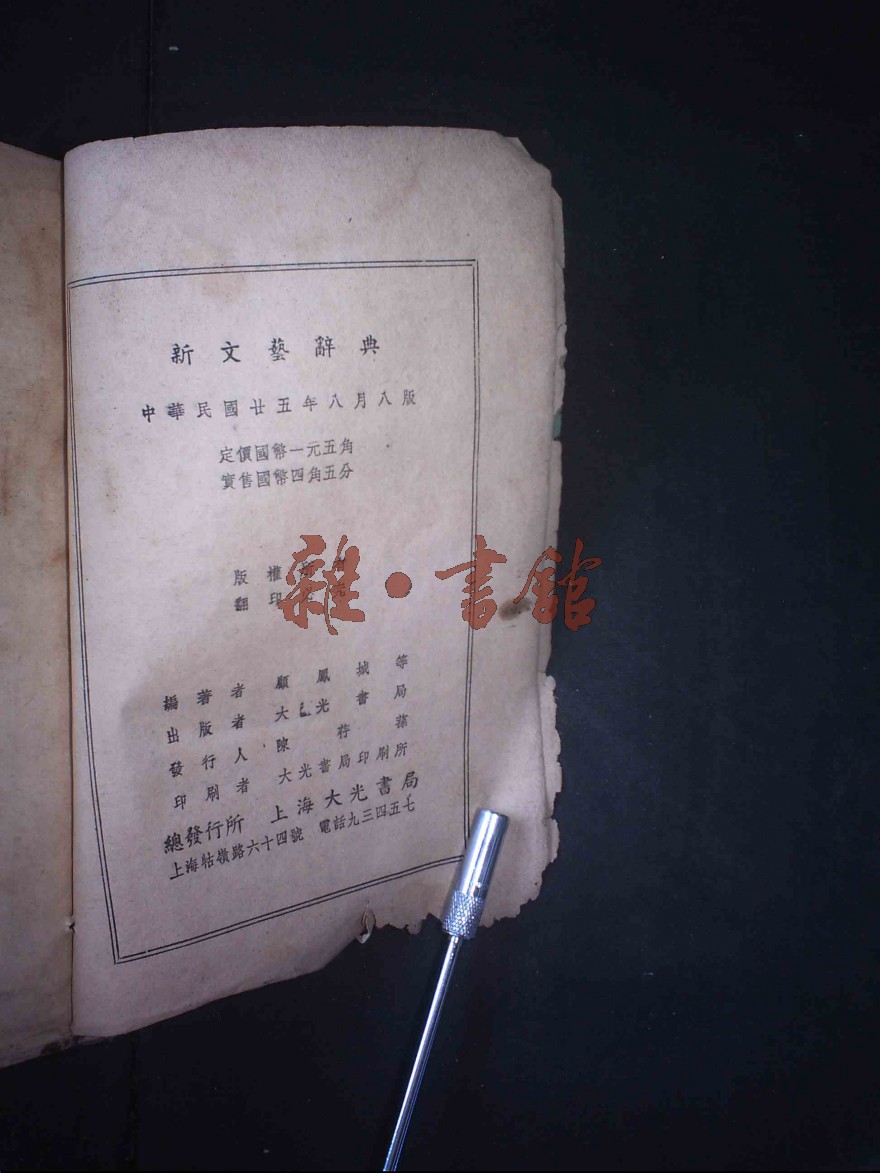 新文藝辭典
中華民國廿五年八月八版
定價國幣一元五角
實售國幣四角五分
版權所有
翻印必究
雜·書館
編著者 顧鳳城等
出版者 大光書局
發行人 陳荇蓀
印刷者 大光書局印刷所
總發行所 上海大光書局
上海牯嶺路六十四號 電話九三四五七